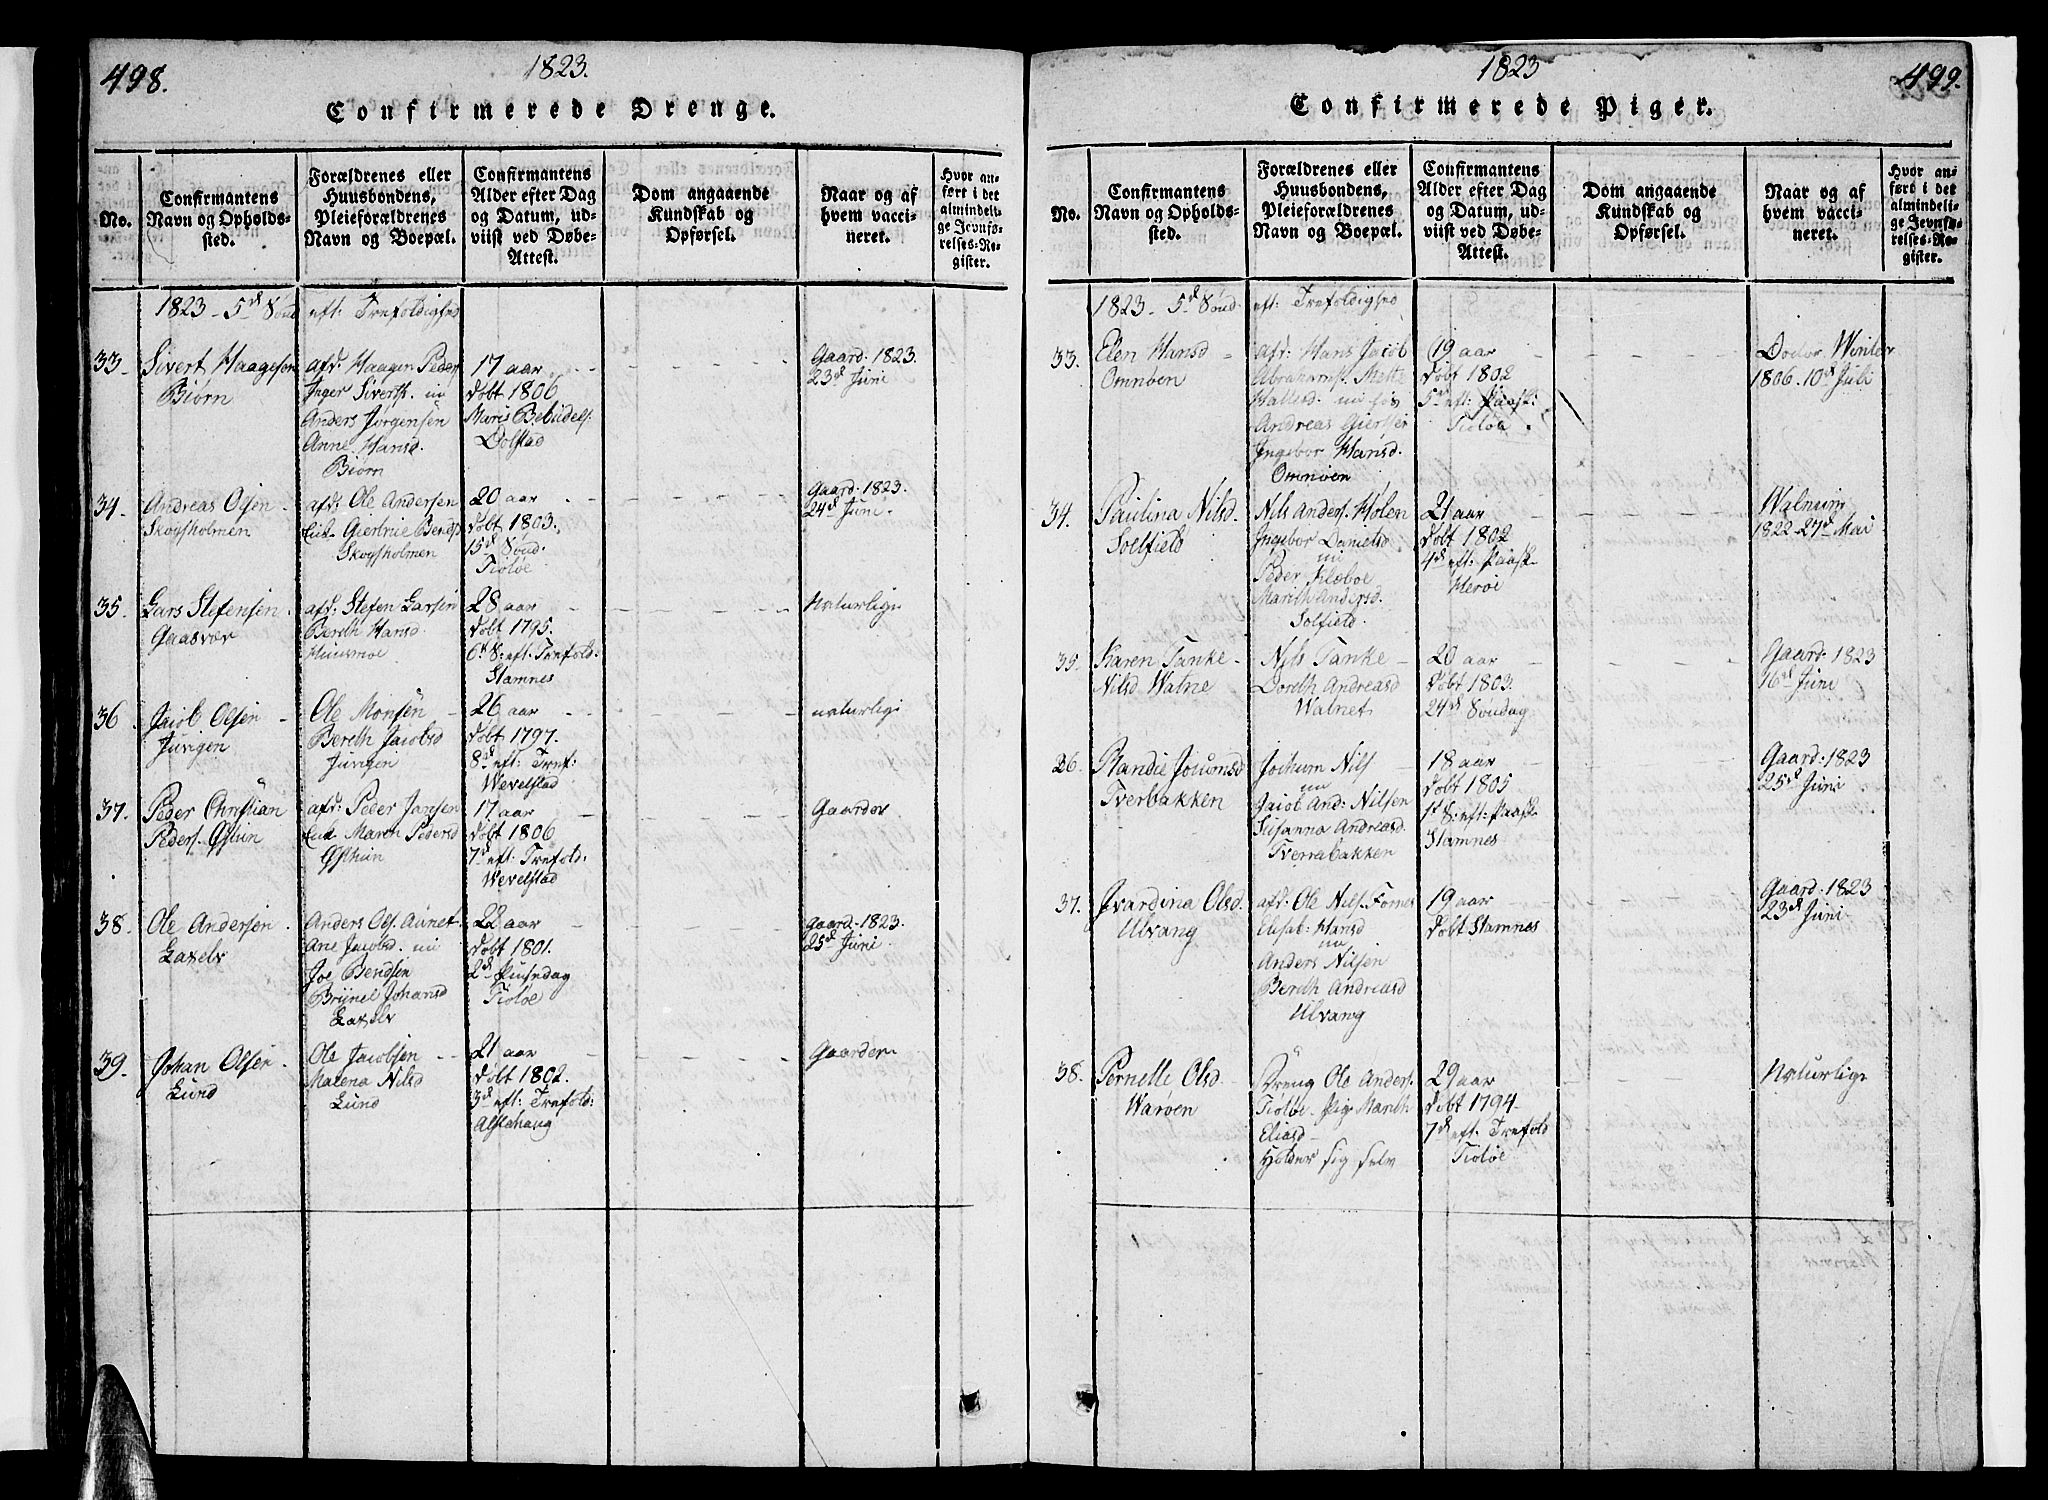 498.
1823.
Confirmerede Drenge.
No.
Confirmantens
Navn og Opholds-
sted.
Forældrenes eller
Huusbondens,
Pleieforældrenes
Navn og Boepæl.
Confirmantens
Alder efter Dag
og Datum, ud-
viist ved Døbe-
Attest.
Dom angaaende
Kundskab og
Opførsel.
Naar og af
hvem vacci-
neret.
Hvor an-
ført i det
almindeli-
ge Jevnfø-
relses-Re-
gister.
1823 - 5d Sønd eft: Trefoldighed
33
Sivert Haagesen
Biørn
afd: Haagen Peders
Inger Sivertsd. nu
Anders Jørgensen
Anne Hansd.
Biørn
17 aar
døbt 1806
Mariæ Bebudels:
Dolstad
Gaard: 1823.
23d Juni
34.
Andreas Olsen
Skogsholmen
afd: Ole Andersen
Enk Giertrue Bends
Skogsholmen
20 aar
døbt 1803.
15d Sønd:
Tiøtøe
Gaard: 1823.
24d Juni
35
Lars Stefensen
Gaasvær
afd: Stefen Larsen
Bereth Hansd
Huusmoe
28 aar
døbt 1795.
6d S: eft: Trefold:
Stamnes
Naturlige
36
Jacob Olsen
Jungen
Ole Monsen
Bereth Jacobsd
Jungen
26 aar
døbt 1797.
8d eft: Tref:
Wevelstad
naturlige
37.
Peder Christian
Peders. Østun
afd: Peder Jansen
Enk Maren Pedersd
Østhun
17 aar
døbt 1806
7d eft: Trefold:
Wevelstad
Gaarder
38.
Ole Andersen
Laxelv
Anders Ols. Aunet
Ane Jacobsd. nu
Joe Bendsen
Brynel Johansd
Laxelv
22 aar
døbt 1801.
2d Pinsedag
Tiøtøe
Gaard: 1823.
25d Juni
39.
Johan Olsen
Lund
Ole Jacobsen
Malena Nilsd
Lund
21 aar
døbt 1802.
3d eft: Trefold:
Alstahaug
Gaarder
1823
499.
Confirmerede Piger.
No.
Confirmantens
Navn og Opholds-
sted.
Forældrenes eller
Huusbondens,
Pleieforældrenes
Navn og Boepæl.
Confirmantens
Alder efter Dag
og Datum, ud-
viist ved Døbe-
Attest.
Dom angaaende
Kundskab og
Opførsel.
Naar og af
hvem vacci-
neret.
Hvor an-
ført i det
almindeli-
ge Jevnfø-
relses-Re-
gister.
1823 - 5d Sønd eft: Trefoldighed
33.
Elen Hansd
Omnøen
afd: Hans Jacob
Abrahams. Mette
Hallesd. nu hos
Andreas Giertsen
Ingebor Hansd.
Omnøen
19 aar
døbt 1802
5d eft: Paask:
Tiøtøe
Doctor Winter
1806. 10d Juli
34.
Paulina Nilsd.
Solfield
Nils Anders. Holen
Ingebor Danielsd
nu
Peder Klæboe
Mareth Andersd.
Solfield.
21 aar
døbt 1802
4d eft: Paask
Herøe
Walnum
1822 27d Mai
35.
Karen Tanke
Nilsd Walne
Nils Tanke
Doreth Andreasd
Walnet
20 aar
døbt 1803.
24d Søndag
Gaard: 1823
16d Juni
26.
Randie Jocumsd
Tverbakken
Jochum Nils
nu
Jacob And: Nilsen
Susanna Andreasd.
Tverrabakken
18 aar
døbt 1805
1st S: eft: Paask
Stamnes
Gaard: 1823
25d Juni
37.
Ivardina Olsd.
Ulvang
afd: Ole Nils. Fornes
Elisab: Hansd
nu
Anders Nilsen
Bereth Andreasd
Ulvang
19 aar
døbt Stamnes
Gaard: 1823
23d Juni
38.
Pernelle Olsd.
Warøen
Dreng Ole Anders.
Tiøtøe. Pige Mareth
Eliasd
Holder sig selv
29 aar
døbt 1794
7d eft: Trefold
Tiøtøe
Naturlige